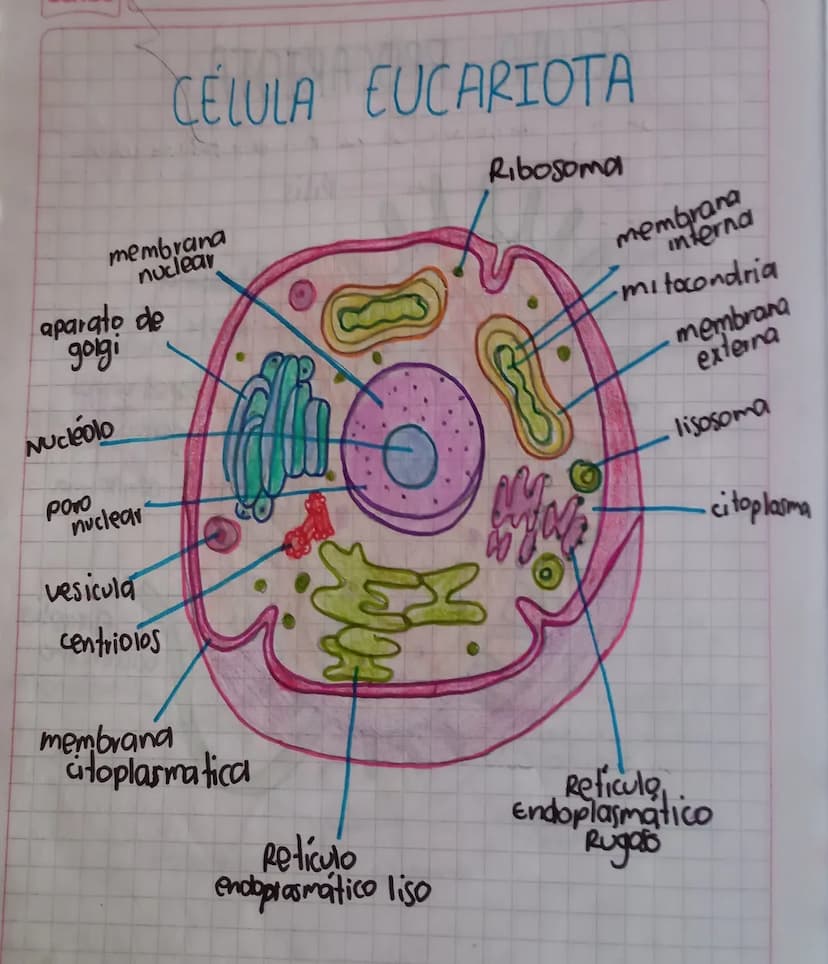 CÉLULA EUCARIOTA
Ribosoma
membrana
nuclear
membrana
interna
mitocondria
membrana
externa
aparato de
golgi
Nucléolo
lisosoma
poro
nuclear
citoplasma
vesicula
centriolos
membrana
citoplasmatica
Retículo
endoplasmático
Rugoso
Retículo
endoplasmático liso